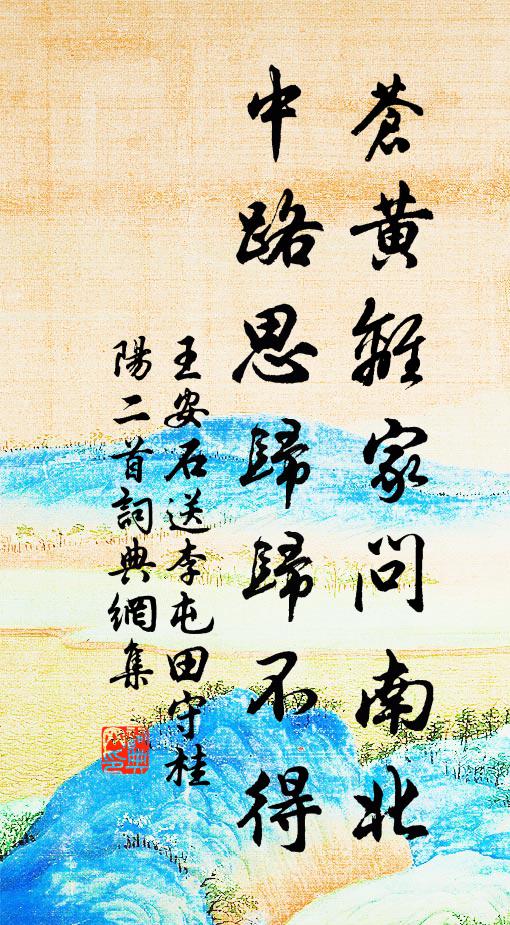 蒼黃離家問南北
中路思歸歸不得
王安石送李屯田守桂
陽二首詞典網集